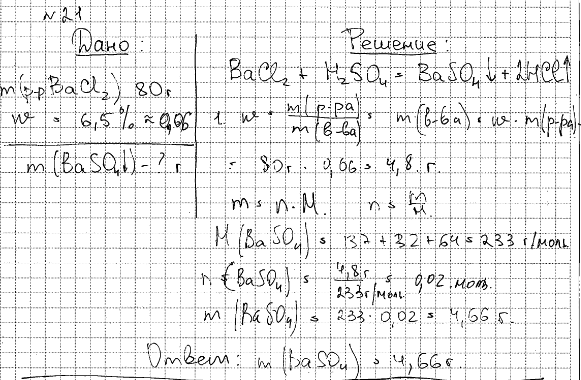 №21
Дано:
m(р-р BaCl₂) 80г
w = 6,5% ≈ 0,06
m(BaSO₄↓) - ? г
Решение:
BaCl₂ + H₂SO₄ = BaSO₄↓ + 2HCl↑
1. w = m(р-ра)/m(в-ва) = m(в-ва) = w · m(р-ра) =
= 80г · 0,06 = 4,8 г.
m = n · M. n = m/M.
M(BaSO₄) = 137 + 32 + 64 = 233 г/моль
n (BaSO₄) = 4,8г / 233 г/моль = 0,02 моль.
m (BaSO₄) = 233 · 0,02 = 4,66 г.
Ответ: m(BaSO₄) = 4,66г.